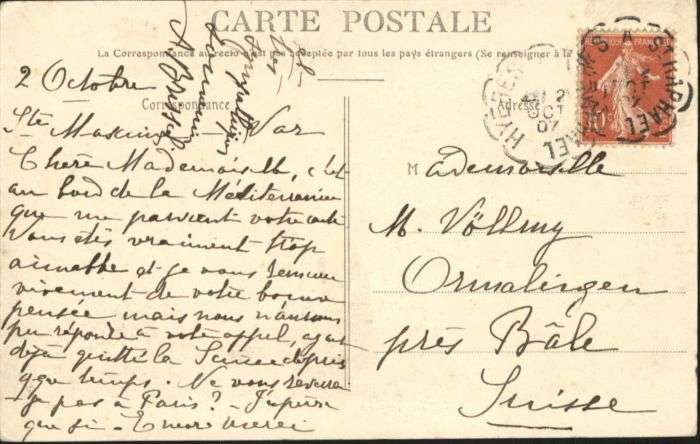 CARTE POSTALE
La Correspondance au recto n'est pas acceptée par tous les pays étrangers (Se renseigner à la
Correspondance
Adresse
2 Octobre
Ste Maxime Var
Chère Mademoiselle, c'est
au bord de la Méditerranée
que me parvient votre carte
Vous êtes vraiment trop
aimable et je vous remercie
vivement de votre bonne
pensée mais nous n'avons
pu répondre à votre appel, ayant
déjà quitté la Suisse depuis
qque temps. Ne vous reverrai
-je pas à Paris? J'espère
que si - Encore merci
Mademoiselle
M. Völlmy
Ormalingen
près Bâle
Suisse
HYERES
ST RAPHAEL
2
OCT
07
REPUBLIQUE FRANÇAISE
10